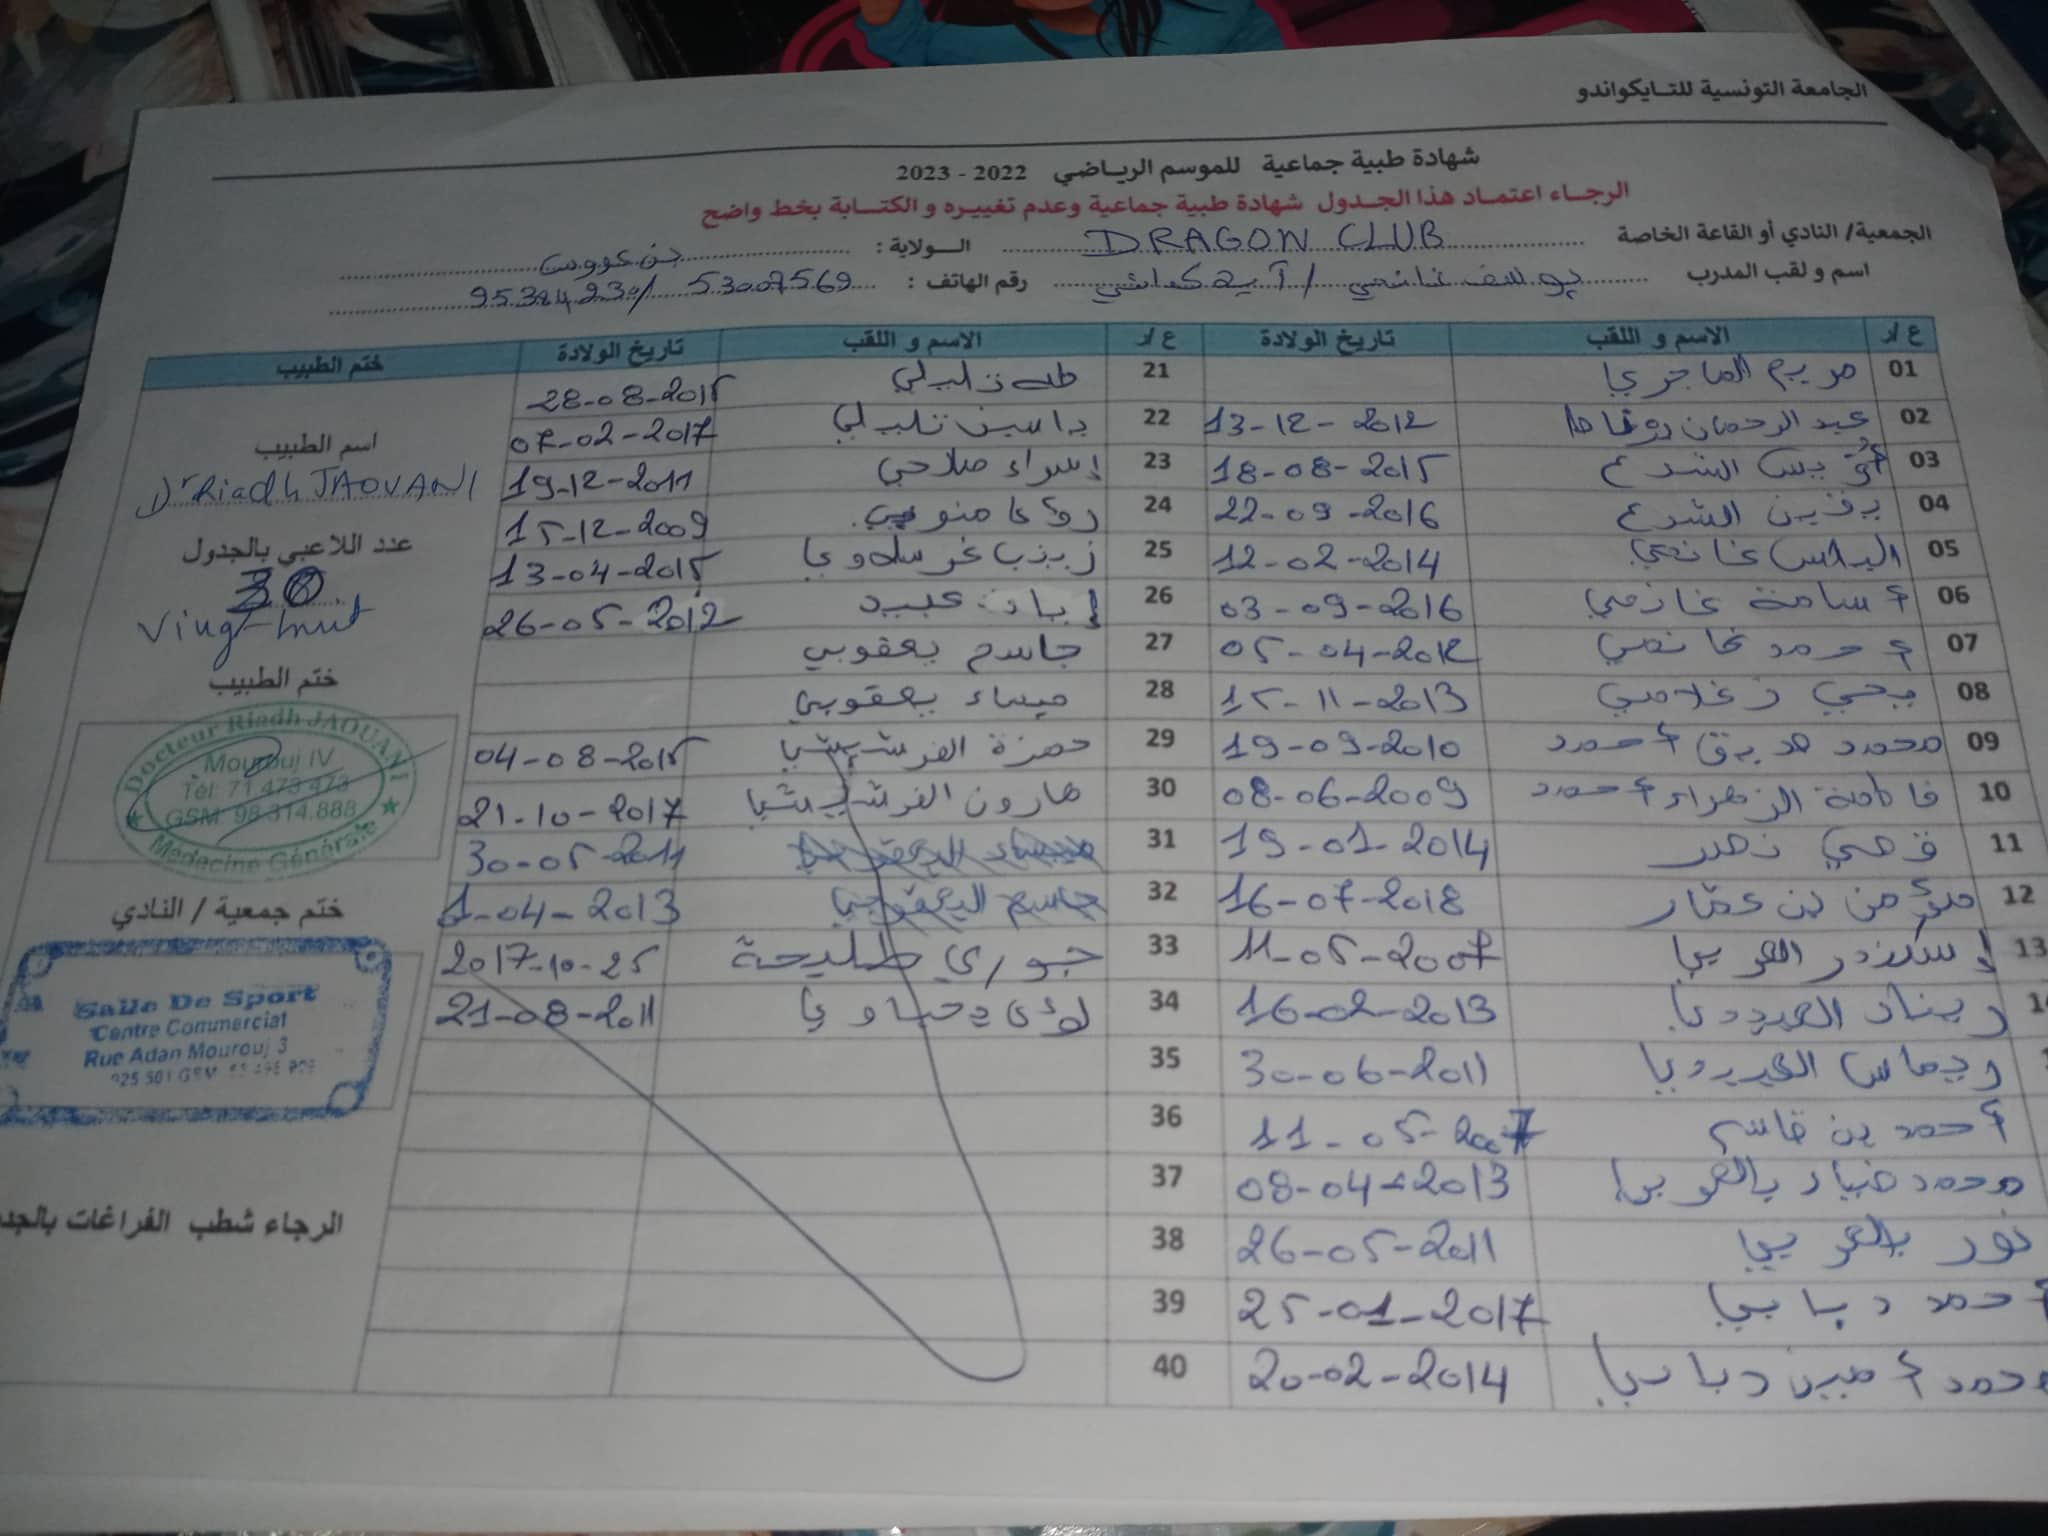 الجامعة التونسية للتـايكواندو
شهادة طبية جماعية للموسم الرياضي 2022 - 2023
الرجاء اعتماد هذا الجدول شهادة طبية جماعية وعدم تغييره و الكتابة بخط واضح
الجمعية/ النادي أو القاعة الخاصة DRAGON CLUB الـولاية : بن عروس
اسم و لقب المدرب يوسف غانمي / آية رقم الهاتف : 53007569 /
ع/ر الاسم و اللقب تاريخ الولادة ع/ر الاسم و اللقب تاريخ الولادة ختم الطبيب
01 مريم الماجري 21 طه تليلي 28-08-2015
02 عبد الرحمان 13-12-2012 22 ياسين تليلي 07-02-2017
اسم الطبيب
03 أويس الشرع 18-08-2015 23 إسراء صلاحي 19-12-2011
Dr Riadh JAOUANI
04 يقين الشرع 22-09-2016 24 رؤى 15-12-2009
عدد اللاعبي بالجدول
05 الياس غانمي 12-02-2014 25 زينب 13-04-2015
06 أسامة غانمي 03-09-2016 26 عبيد 26-05-2012
Vingt-huit
07 أحمد غانمي 05-04-2012 27 جاسم يعقوبي
ختم الطبيب
08 يحي زغلامي 15-11-2013 28 ميساء يعقوبي
Docteur Riadh JAOUANI
Mourouj IV
Tél: 71.473.473
GSM: 98.314.888
Médecine Générale
09 محمد صديق أحمد 19-09-2010 29 حمزة الفرشيشي 04-08-2015
10 فاطمة الزهراء أحمد 08-06-2009 30 هارون الفرشيشي 21-10-2017
11 قصي نصر 19-01-2014 31 ميساء اليعقوبي 30-05-2011
12 مؤمن بن عمار 16-07-2018 32 جاسم اليعقوبي 1-04-2013
ختم جمعية / النادي
13 إسكندر 11-05-2007 33 جوري طليحة 2017-10-25
Salle De Sport
Centre Commercial
Rue Adan Mourouj 3
16-02-2013 34 لؤي يحياوي 21-08-2011
30-06-2011 35
أحمد بن قاسم 11-05-2007 36
محمد ضياء 08-04-2013 37
الرجاء شطب الفراغات
نور 26-05-2011 38
25-01-2017 39
أمين 20-02-2014 40